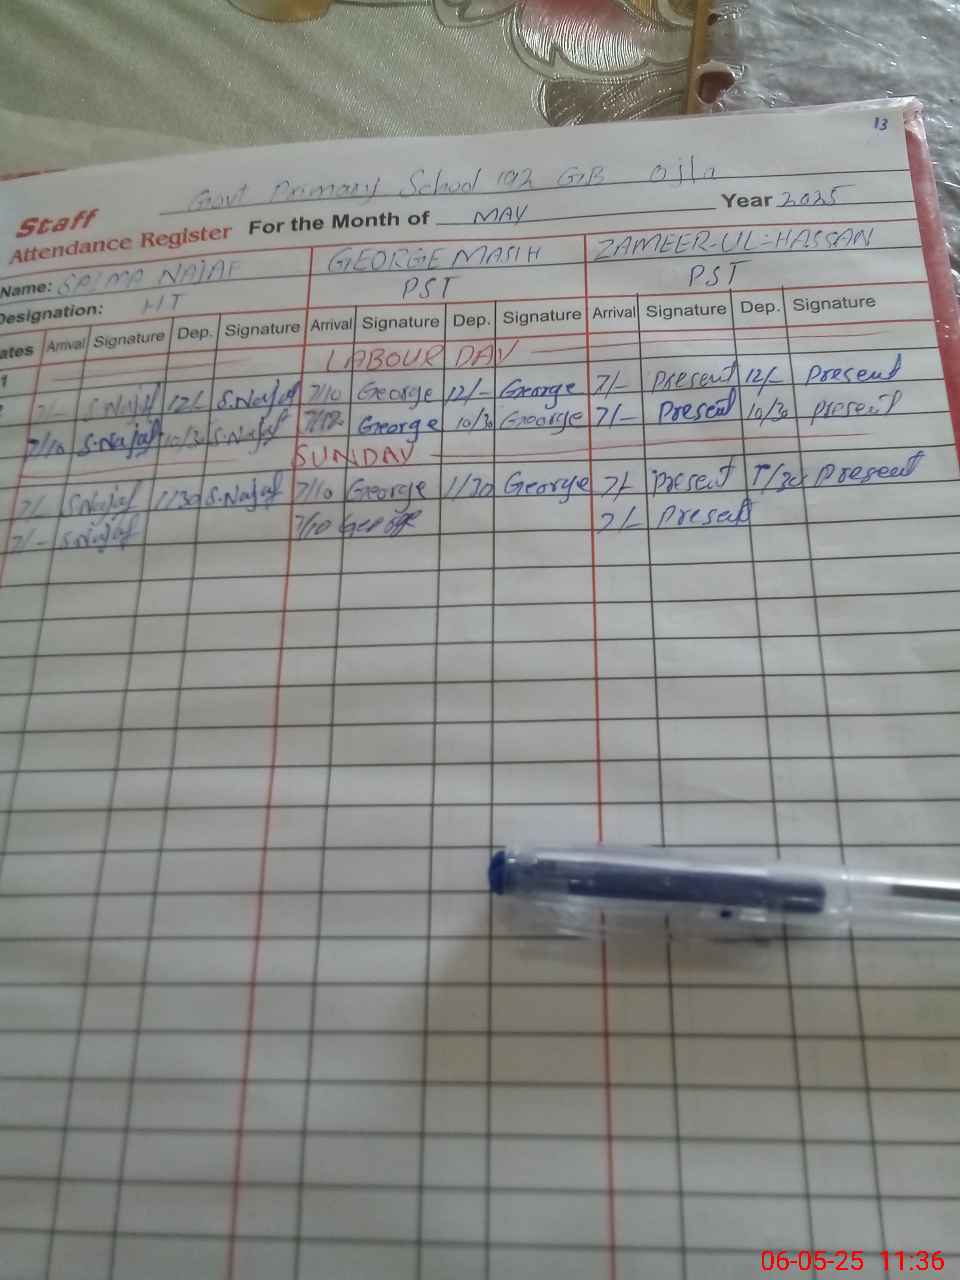 13
Govt Primary School 192 GB Ojla
Staff
Attendance Register For the Month of MAY Year 2025
Name: SAIMA NAJAF GEORGE MASIH ZAMEER-UL-HASSAN
Designation: HT PST PST
ates Arrival Signature Dep. Signature Arrival Signature Dep. Signature Arrival Signature Dep. Signature
1 LABOUR DAY
7/- S.Najaf 12/- S.Najaf 7/10 George 12/- George 7/- Present 12/- Present
7/10 S.Najaf 10/30 S.Najaf George 10/30 George 7/- Present 10/30 Present
SUNDAY
7/- S.Najaf 1/30 S.Najaf 7/10 George 1/30 George 7/- Present 1/30 Present
7/- S.Najaf 7/10 George 7/- Present
06-05-25 11:36